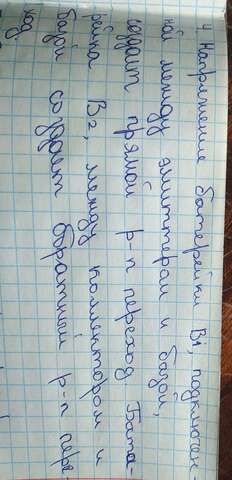 4 Напряжение батарейки B1, подключен-
ной между эмиттером и базой,
создает прямой p-n переход Бата-
рейка B2, между коллектором и
базой создает обратный p-n пере-
ход.